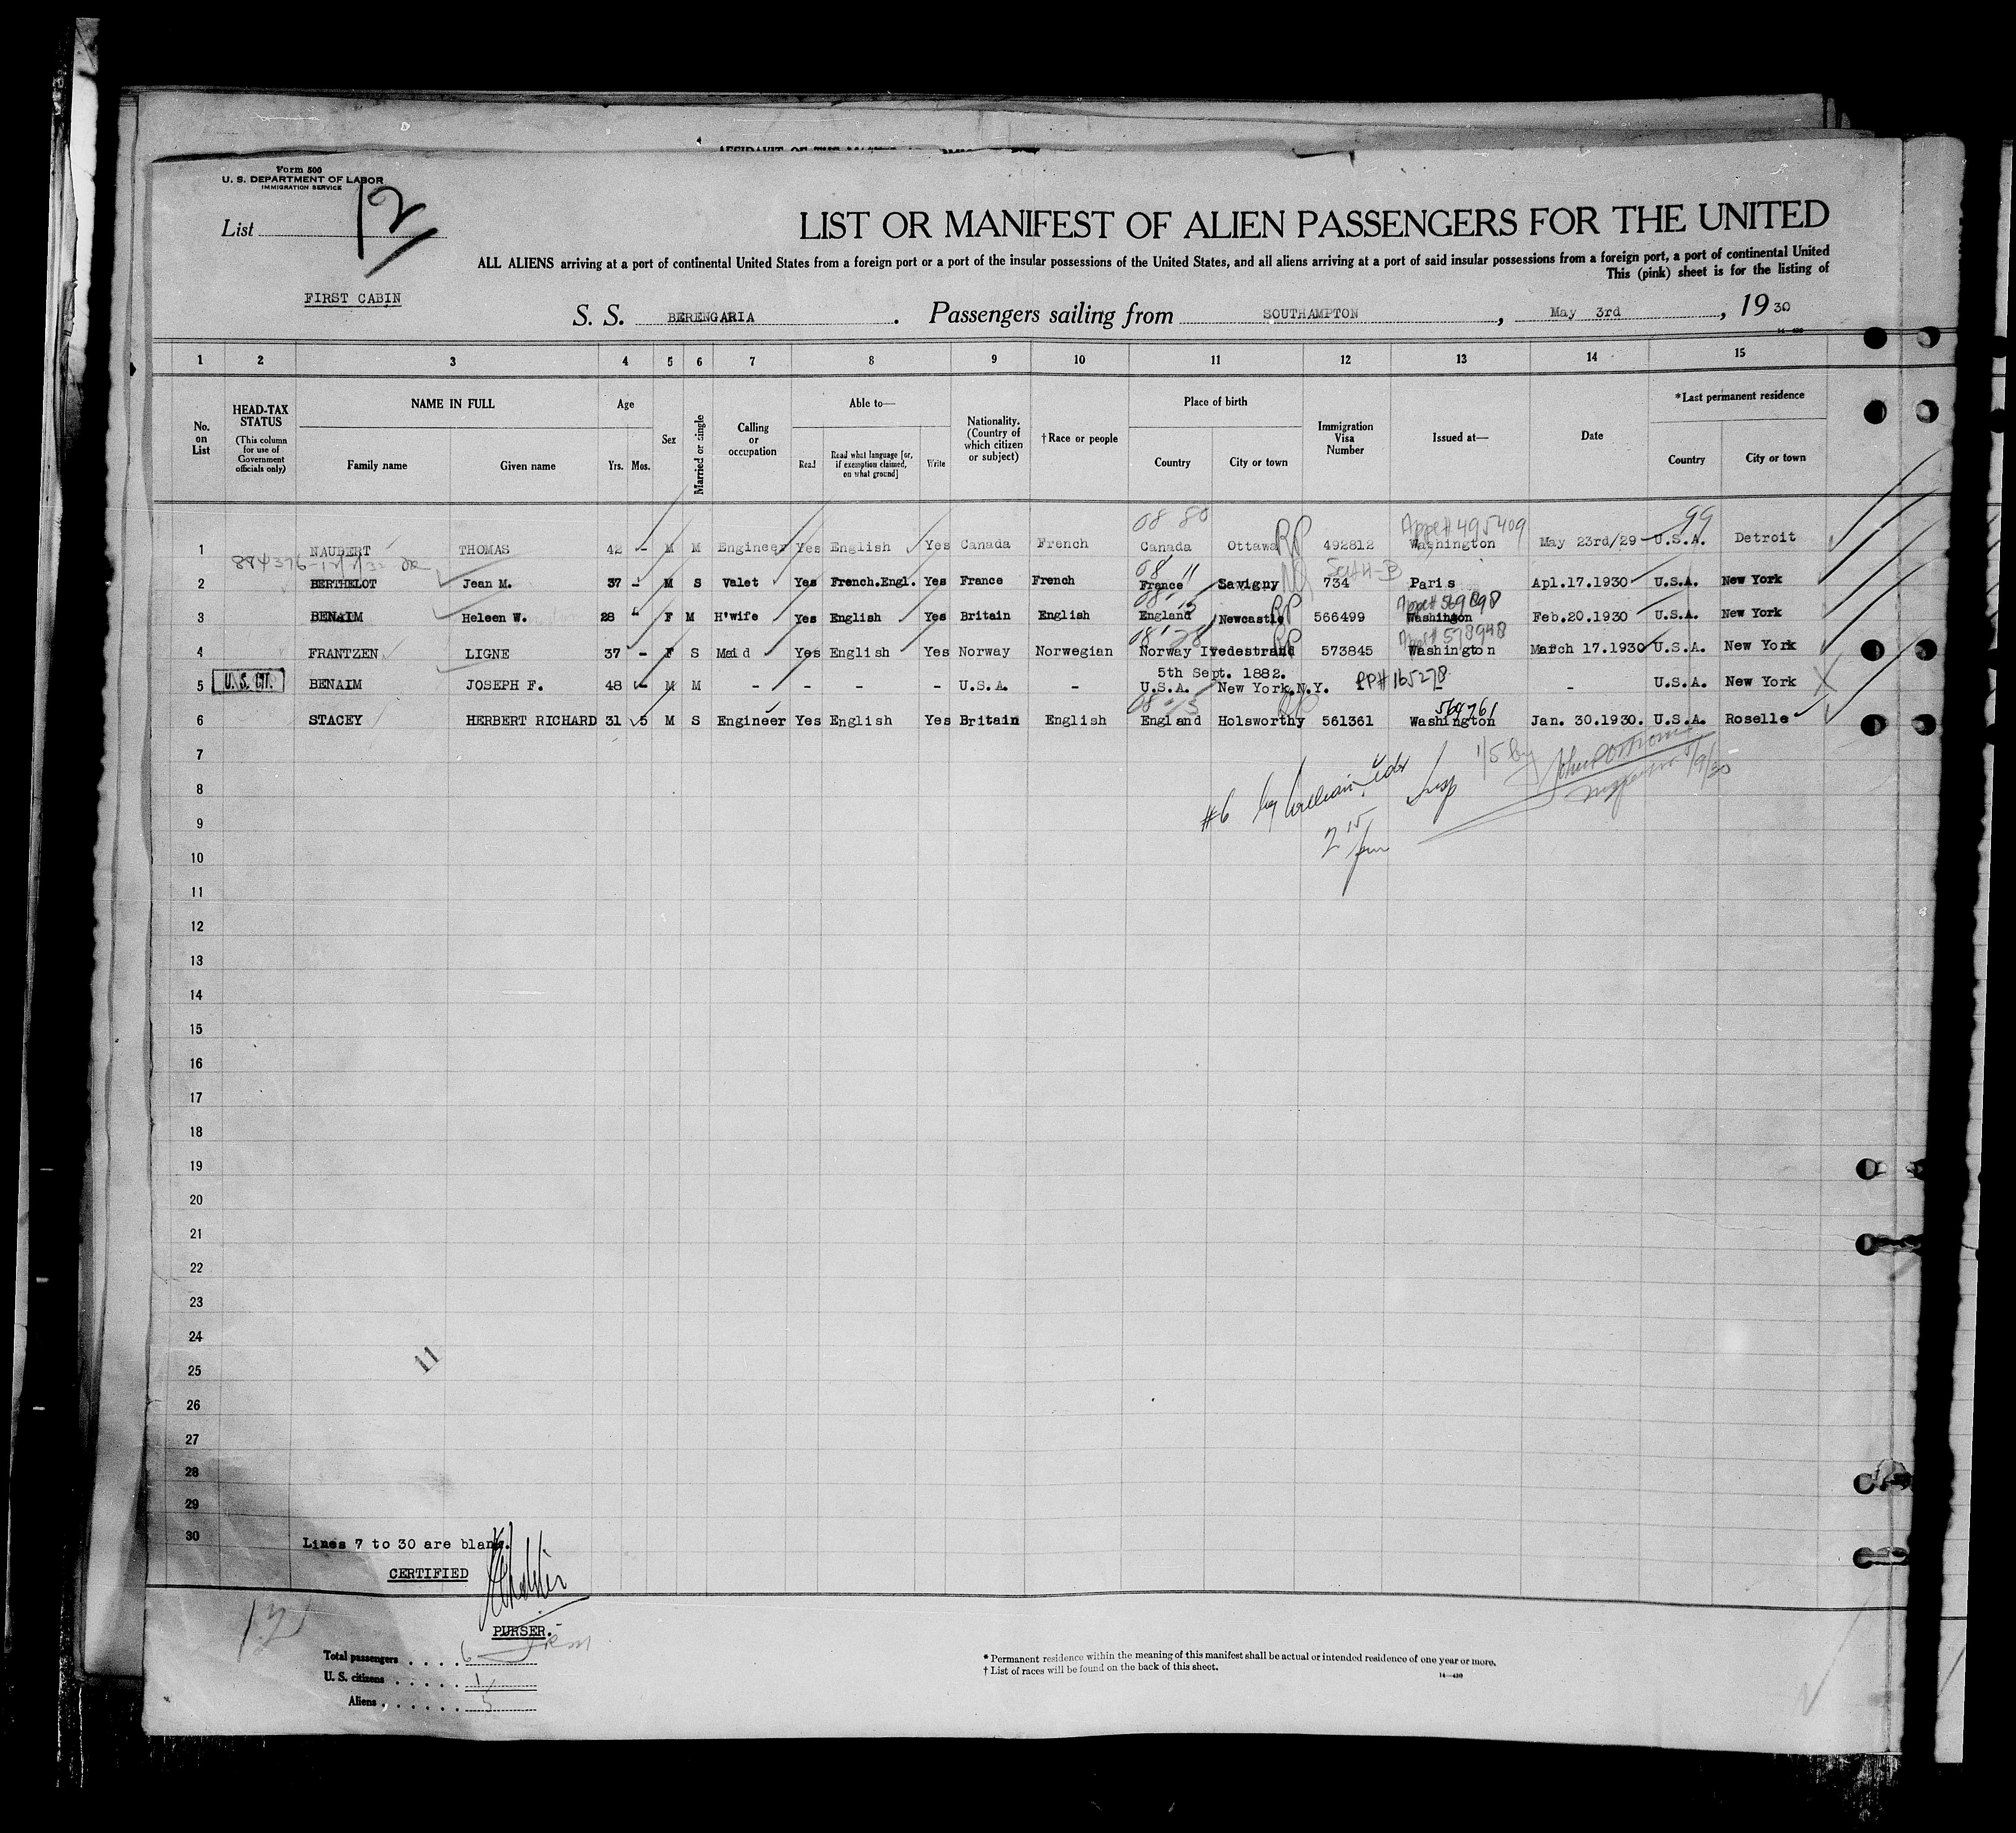 Form 500
U. S. DEPARTMENT OF LABOR
IMMIGRATION SERVICE
List 12
LIST OR MANIFEST OF ALIEN PASSENGERS FOR THE UNITED
ALL ALIENS arriving at a port of continental United States from a foreign port or a port of the insular possessions of the United States, and all aliens arriving at a port of said insular possessions from a foreign port, a port of continental United
This (pink) sheet is for the listing of
FIRST CABIN
S. S. BERENGARIA. Passengers sailing from SOUTHAMPTON, May 3rd, 1930
1 2 3 4 5 6 7 8 9 10 11 12 13 14 15
No. on List
HEAD-TAX STATUS (This column for use of Government officials only)
NAME IN FULL
Family name Given name
Age
Yrs. Mos.
Sex
Married or single
Calling or occupation
Able to—
Read Read what language [or, if exemption claimed, on what ground] Write
Nationality. (Country of which citizen or subject)
†Race or people
Place of birth
Country City or town
Immigration Visa Number
Issued at—
Date
*Last permanent residence
Country City or town
08 80 Appl# 495409 99
1 NAUBERT THOMAS 42 - M M Engineer Yes English Yes Canada French Canada Ottawa RP 492812 Washington May 23rd/29 U.S.A. Detroit
884376
08 11
2 BERTHELOT Jean M. 37 - M S Valet Yes French.Engl. Yes France French France Savigny 734 Paris Apl.17.1930 U.S.A. New York
Appl# 569898
3 BENAIM Heleen W. 28 " F M H'wife Yes English Yes Britain English England Newcastle RP 566499 Washington Feb.20.1930 U.S.A. New York
Appl# 578948
4 FRANTZEN LIGNE 37 - F S Maid Yes English Yes Norway Norwegian Norway Ivedestrand RP 573845 Washington March 17.1930 U.S.A. New York
5th Sept. 1882.
5 U.S. CIT. BENAIM JOSEPH F. 48 - M M - - - - U.S.A. - U.S.A. New York.N.Y. PP# 165278 - U.S.A. New York
564761
6 STACEY HERBERT RICHARD 31 5 M S Engineer Yes English Yes Britain English England Holsworthy 561361 Washington Jan. 30.1930. U.S.A. Roselle
7
8 #6 by Insp 1/5 by 5/9/30
9 2 15 pm
10
11
12
13
14
15
16
17
18
19
20
21
22
23
24
11
25
26
27
28
29
30
Lines 7 to 30 are blank.
CERTIFIED
PURSER.
12
Total passengers . . . . 6
U. S. citizens . . . . . 1
Aliens . . . . . . 5
* Permanent residence within the meaning of this manifest shall be actual or intended residence of one year or more.
† List of races will be found on the back of this sheet.
14—430